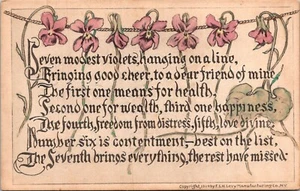 Seven modest violets, hanging on a line,
Bringing good cheer, to a dear friend of mine
The first one means for health,
Second one for wealth, third one happiness,
The fourth, freedom from distress, fifth, love divine.
Number six is contentment,—best on the list,
The Seventh brings everything, the rest have missed.
Copyright,
Manufacturing Co. N.Y.